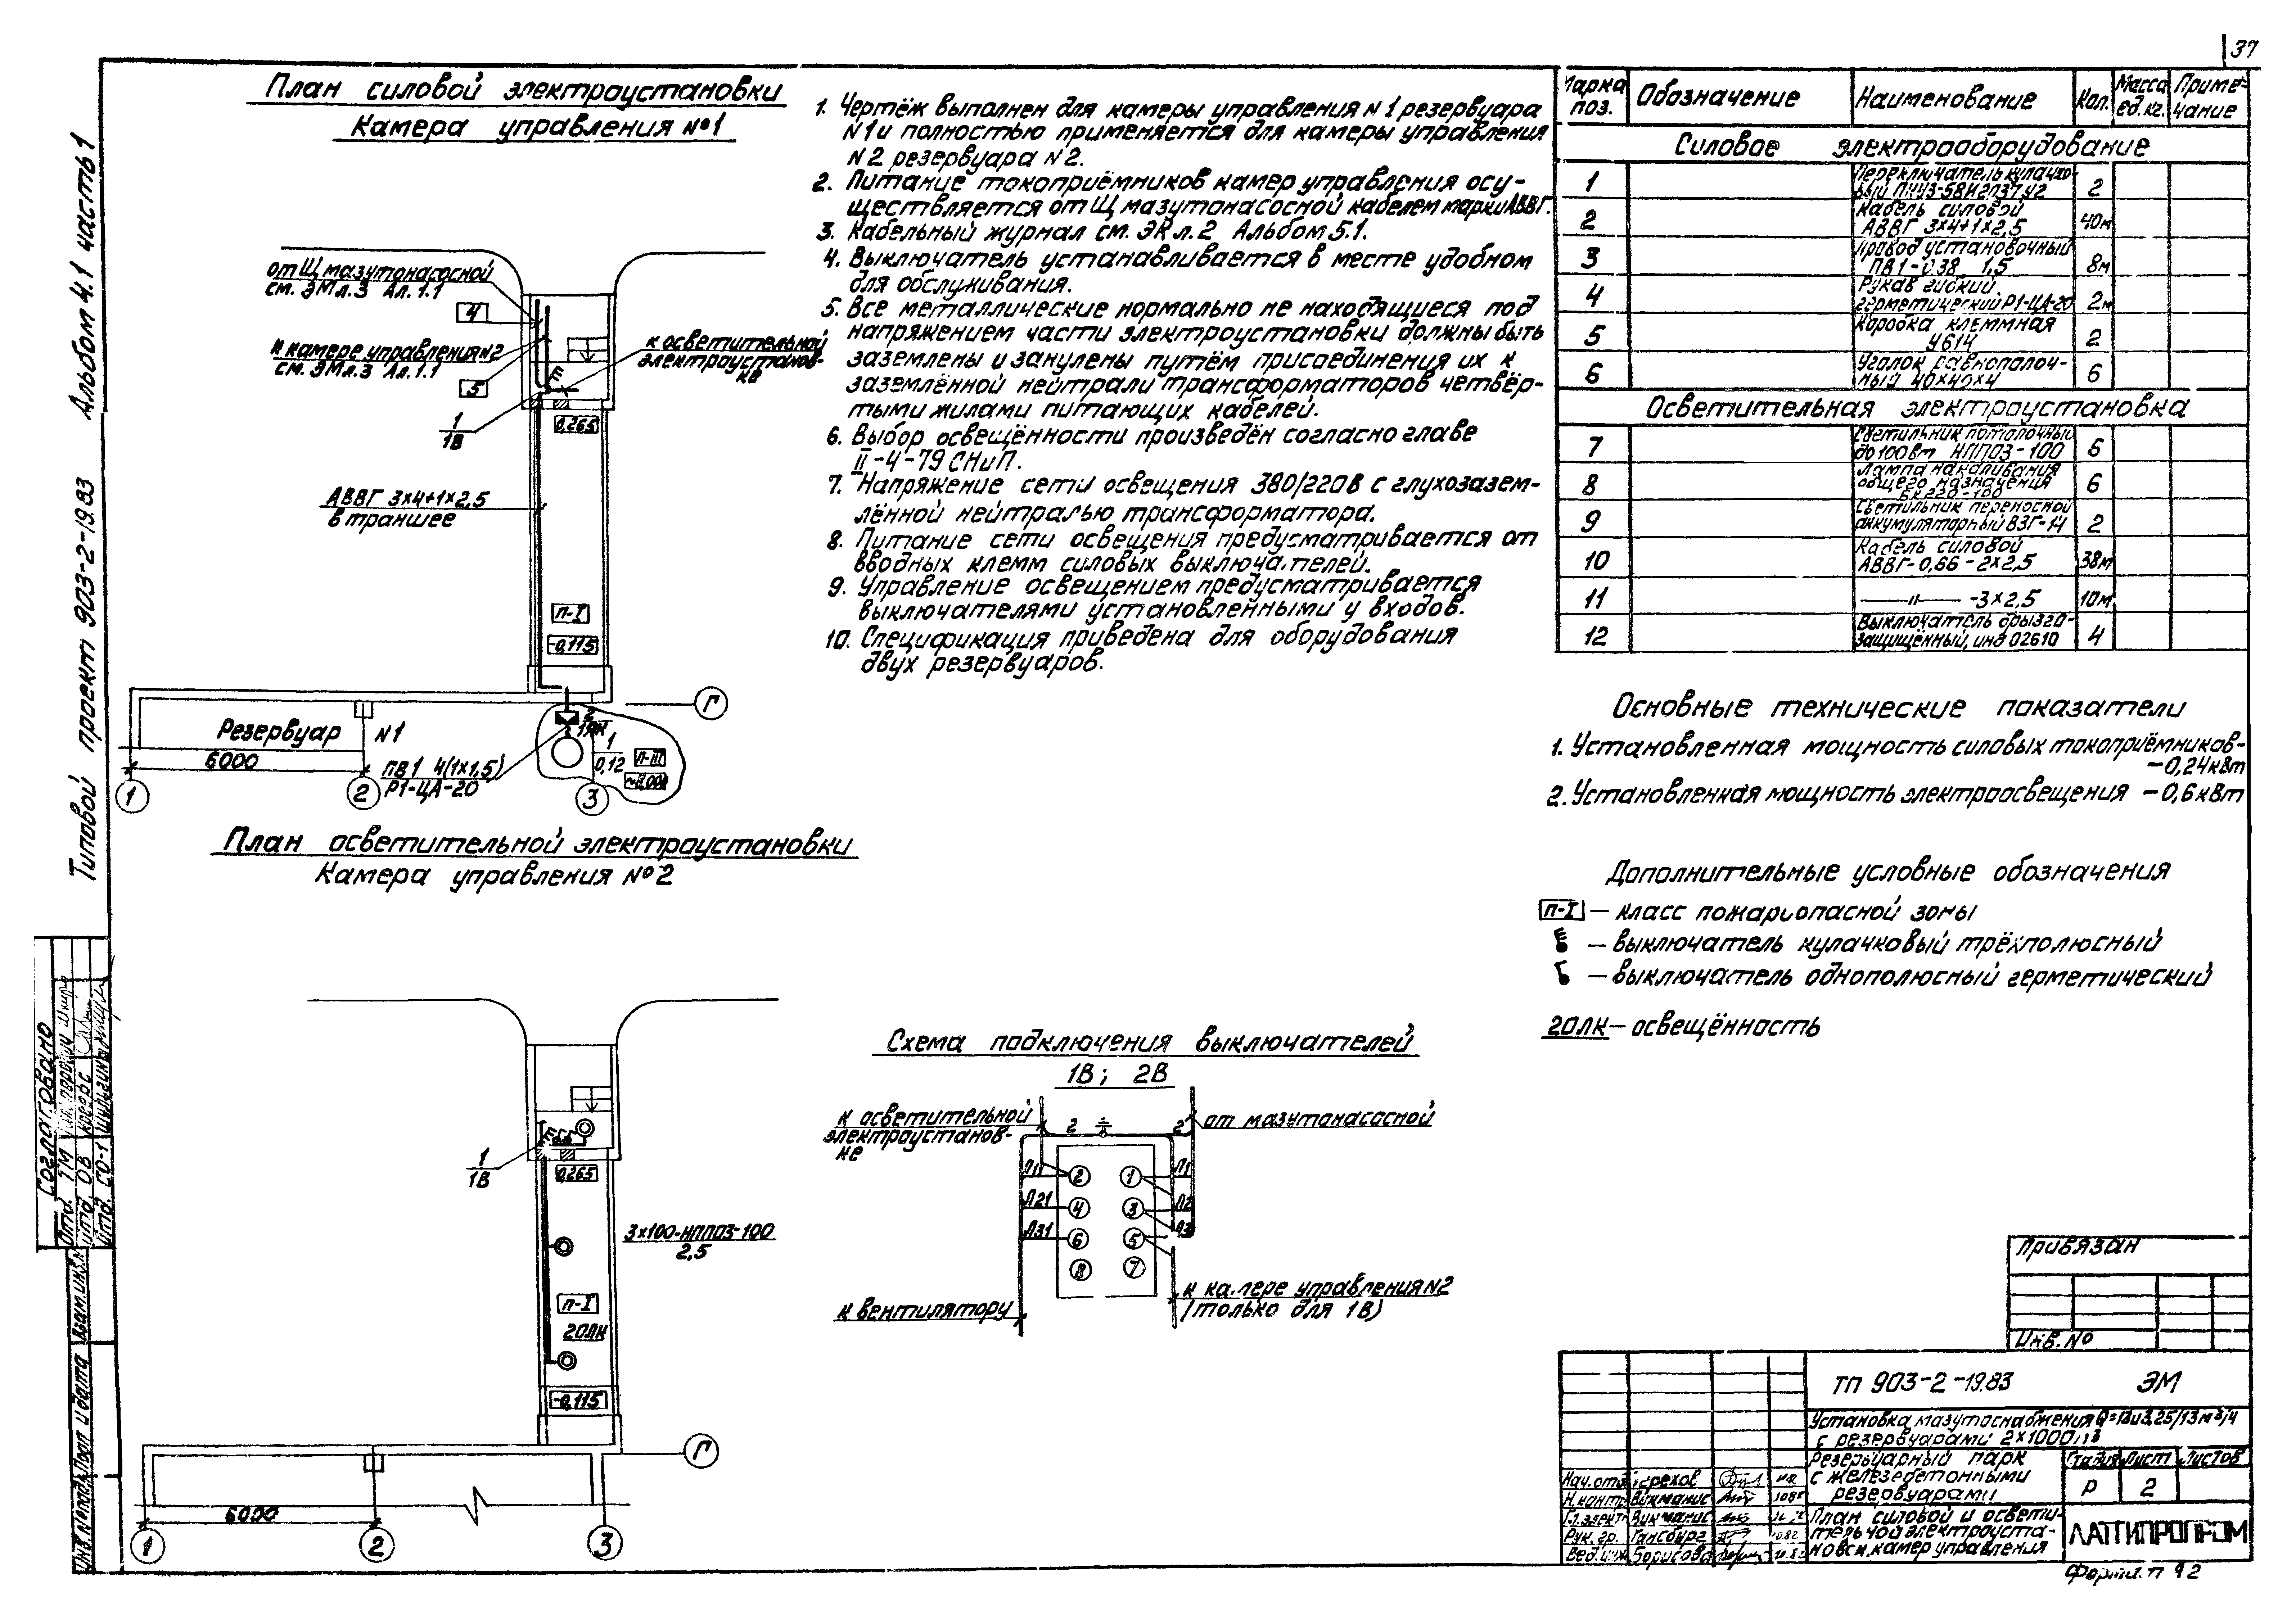 37
Альбом 4.1 часть 1
Типовой проект 903-2-19.83
План силовой электроустановки
Камера управления №1
от Щ мазутонасосной
см. ЭМ л.3 Ал. 1.1
4
к камере управления №2
см. ЭМ л.3 Ал. 1.1
5
к осветительной
электроустанов-
ке
1
1В
0,265
АВВГ 3×4+1×2,5
в траншее
П-I
-0,115
Г
Резервуар №1
6000
ПВ1 4(1×1,5)
Р1-ЦА-20
2
1
0,12
П-III
1
2
3
План осветительной электроустановки
Камера управления №2
1
1В
0,265
3×100-НПП03-100
2,5
П-I
20ЛК
-0,115
Г
6000
1
2
3
1. Чертёж выполнен для камеры управления N1 резервуара
N1 и полностью применяется для камеры управления
N2 резервуара N2.
2. Питание токоприёмников камер управления осу-
ществляется от Щ мазутонасосной кабелем марки АВВГ.
3. Кабельный журнал см. ЭК л.2 Альбом 5.1.
4. Выключатель устанавливается в месте удобном
для обслуживания.
5. Все металлические нормально не находящиеся под
напряжением части электроустановки должны быть
заземлены и занулены путём присоединения их к
заземлённой нейтрали трансформаторов четвёр-
тыми жилами питающих кабелей.
6. Выбор освещённости произведён согласно главе
II-4-79 СНиП.
7. Напряжение сети освещения 380/220В с глухозазем-
лённой нейтралью трансформатора.
8. Питание сети освещения предусматривается от
вводных клемм силовых выключателей.
9. Управление освещением предусматривается
выключателями установленными у входов.
10. Спецификация приведена для оборудования
двух резервуаров.
Схема подключения выключателей
1В; 2В
к осветительной
электроустанов-
ке
2
2
от мазутонасосной
Л1 2 1 Л1
Л21 4 3 Л2
Л31 6 5 Л3
8 7
к вентилятору
к камере управления N2
(только для 1В)
Марка поз. Обозначение Наименование Кол. Масса ед.кг. Приме-чание
Силовое электрооборудование
1 Переключатель кулачко-
вый 2
2 Кабель силовой
АВВГ 3×4+1×2,5 40м
3 Провод установочный
ПВ1-0,38 1,5 8м
4 Рукав гибкий
герметический Р1-ЦА-20 2м
5 Коробка клеммная
У614 2
6 Уголок равнополоч-
ный 40×40×4 6
Осветительная электроустановка
7 Светильник потолочный
до 100 Вт НПП03-100 6
8 Лампа накаливания
общего назначения 6
9 Светильник переносной
аккумуляторный ВЗГ-14 2
10 Кабель силовой
АВВГ-0,66-2×2,5 38м
11 —"— -3×2,5 10м
12 Выключатель брызго-
защищённый, инд 02610 4
Основные технические показатели
1. Установленная мощность силовых токоприёмников-
-0,24кВт
2. Установленная мощность электроосвещения -0,6кВт
Дополнительные условные обозначения
П-I - класс пожароопасной зоны
- выключатель кулачковый трёхполюсный
- выключатель однополюсный герметический
20ЛК - освещённость
Привязан
Инв. №
ТП 903-2-19.83 ЭМ
Установка мазутоснабжения Q=13и3,25/13 м³/ч
с резервуарами 2×1000м3
Резервуарный парк
с железобетонными
резервуарами
Стадия Лист Листов
Р 2
План силовой и освети-
тельной электроуста-
новки камер управления
ЛАТГИПРОПРОМ
Нач. отд. Терехов
Н.контр Викманис
Гл.электр Викманис
Рук. гр. Гансбург 10.82
Вед.инж Борисова
Формат А2
Согласовано
Отд. ТМ
Отд. ОВ
Отд. СО-1
Взам.инв.№
Подп и дата
Инв.№подл.